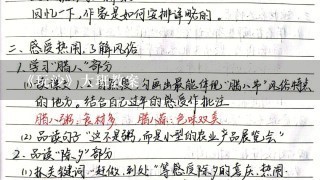 回忆一下,作家是如何安排详略的。
二、感受热闹,了解风俗
1.学习"腊八"部分
(1)默读 勾画出最能体现"腊八节"风俗特点
的地方。结合自己过年的感受作批注
腊八粥:食材多 腊八蒜:色味双美
(2)品读句子"这不是粥,而是小型的农业产品展览会"
2.品读"除夕"部分
(1)抓关键词,"赶做、到处"等感受除夕的喜庆、热闹